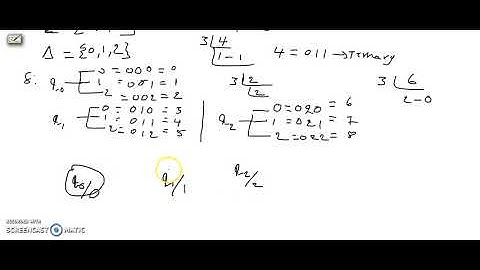 Δ = {0,1,2}
3 4
1-1
4 = 011 → Ternary
8: q0 0 = 000 = 0
1 = 001 = 1
2 = 002 = 2
3 2
2
3 6
2-0
q1 0 = 010 = 3
1 = 011 = 4
2 = 012 = 5
q2 0 = 020 = 6
1 = 021 = 7
2 = 022 = 8
q0/0 q1/1 q2/2
RECORDED WITH
SCREENCAST MATIC